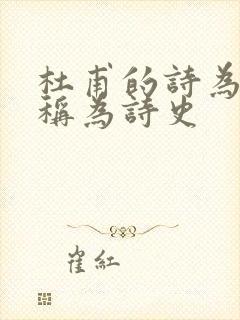 杜甫的詩為
稱為詩史
崔紅